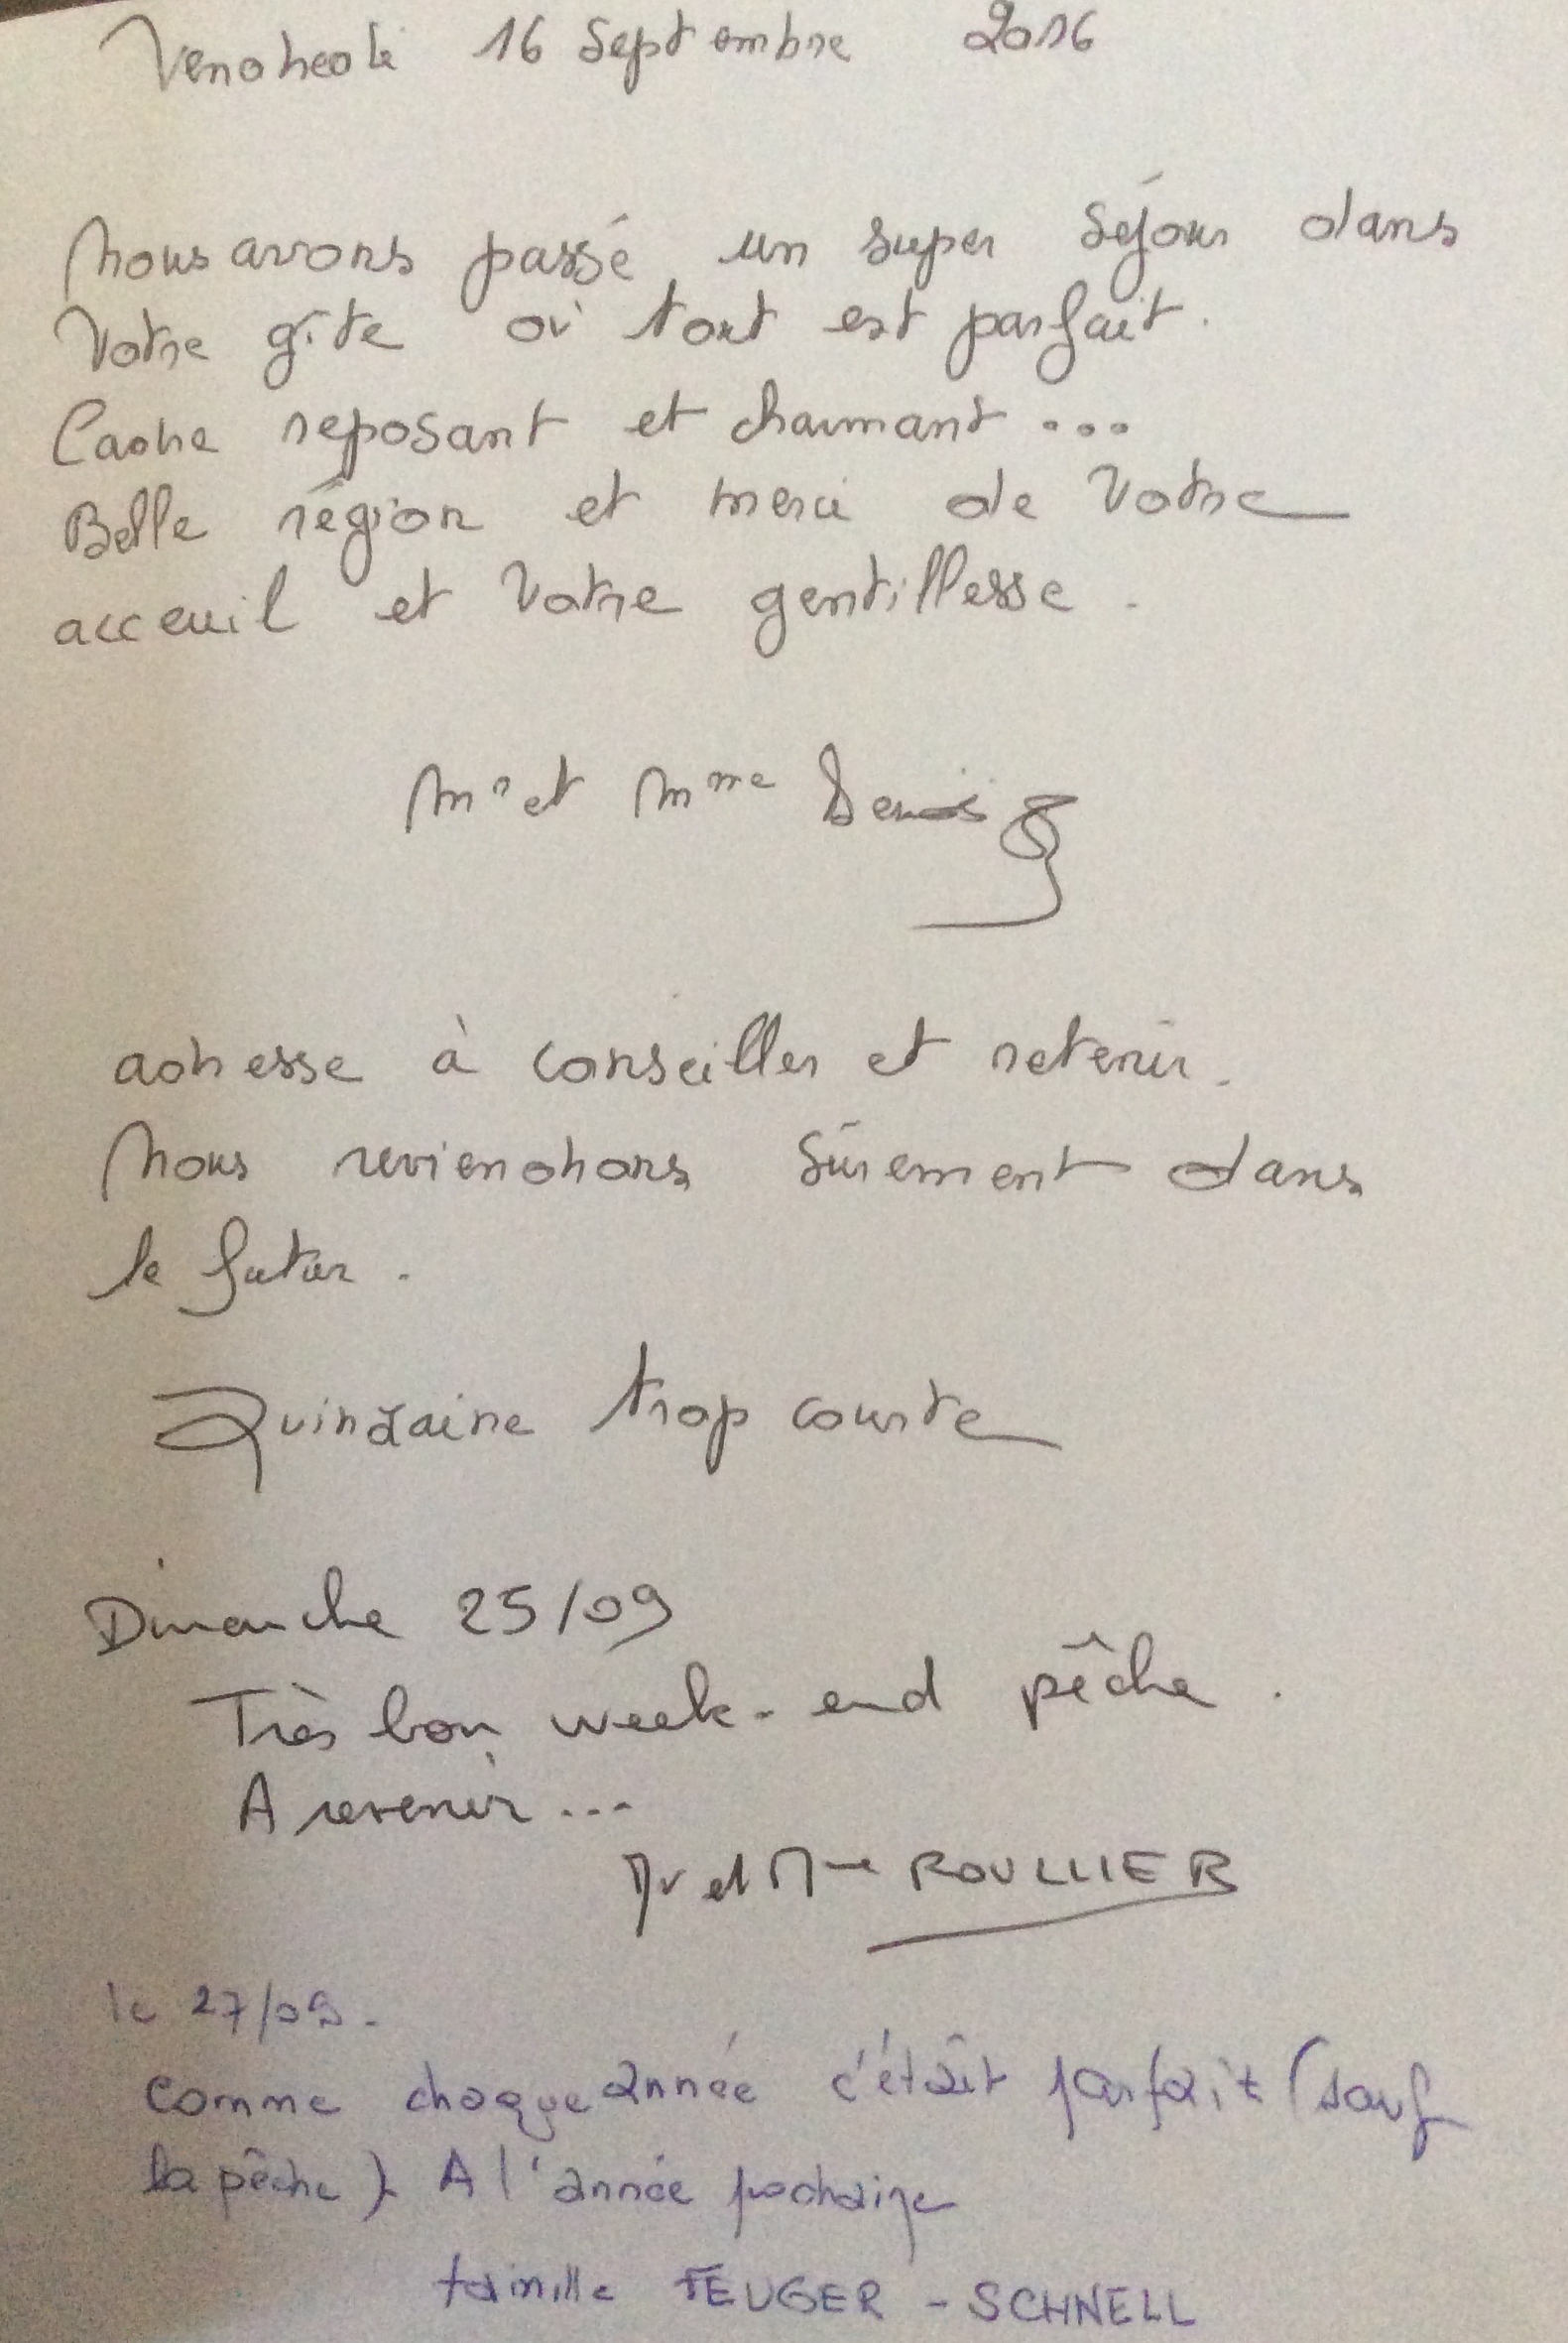 Vendredi 16 Septembre 2016
Nous avons passé un super séjour dans
Votre gîte où tout est parfait.
Cadre reposant et charmant ...
Belle région et merci de Votre
acceuil et Votre gentillesse.
Mr et Mme Denis
adresse à conseiller et retenir.
Nous reviendrons sûrement dans
le futur.
Quinzaine trop courte
Dimanche 25/09
Très bon week-end pêche.
A revenir ...
Mr et Mme ROULLIER
le 27/09.
comme chaque année c'était parfait (sauf
la pêche). A l'année prochaine
famille FEUGER - SCHNELL